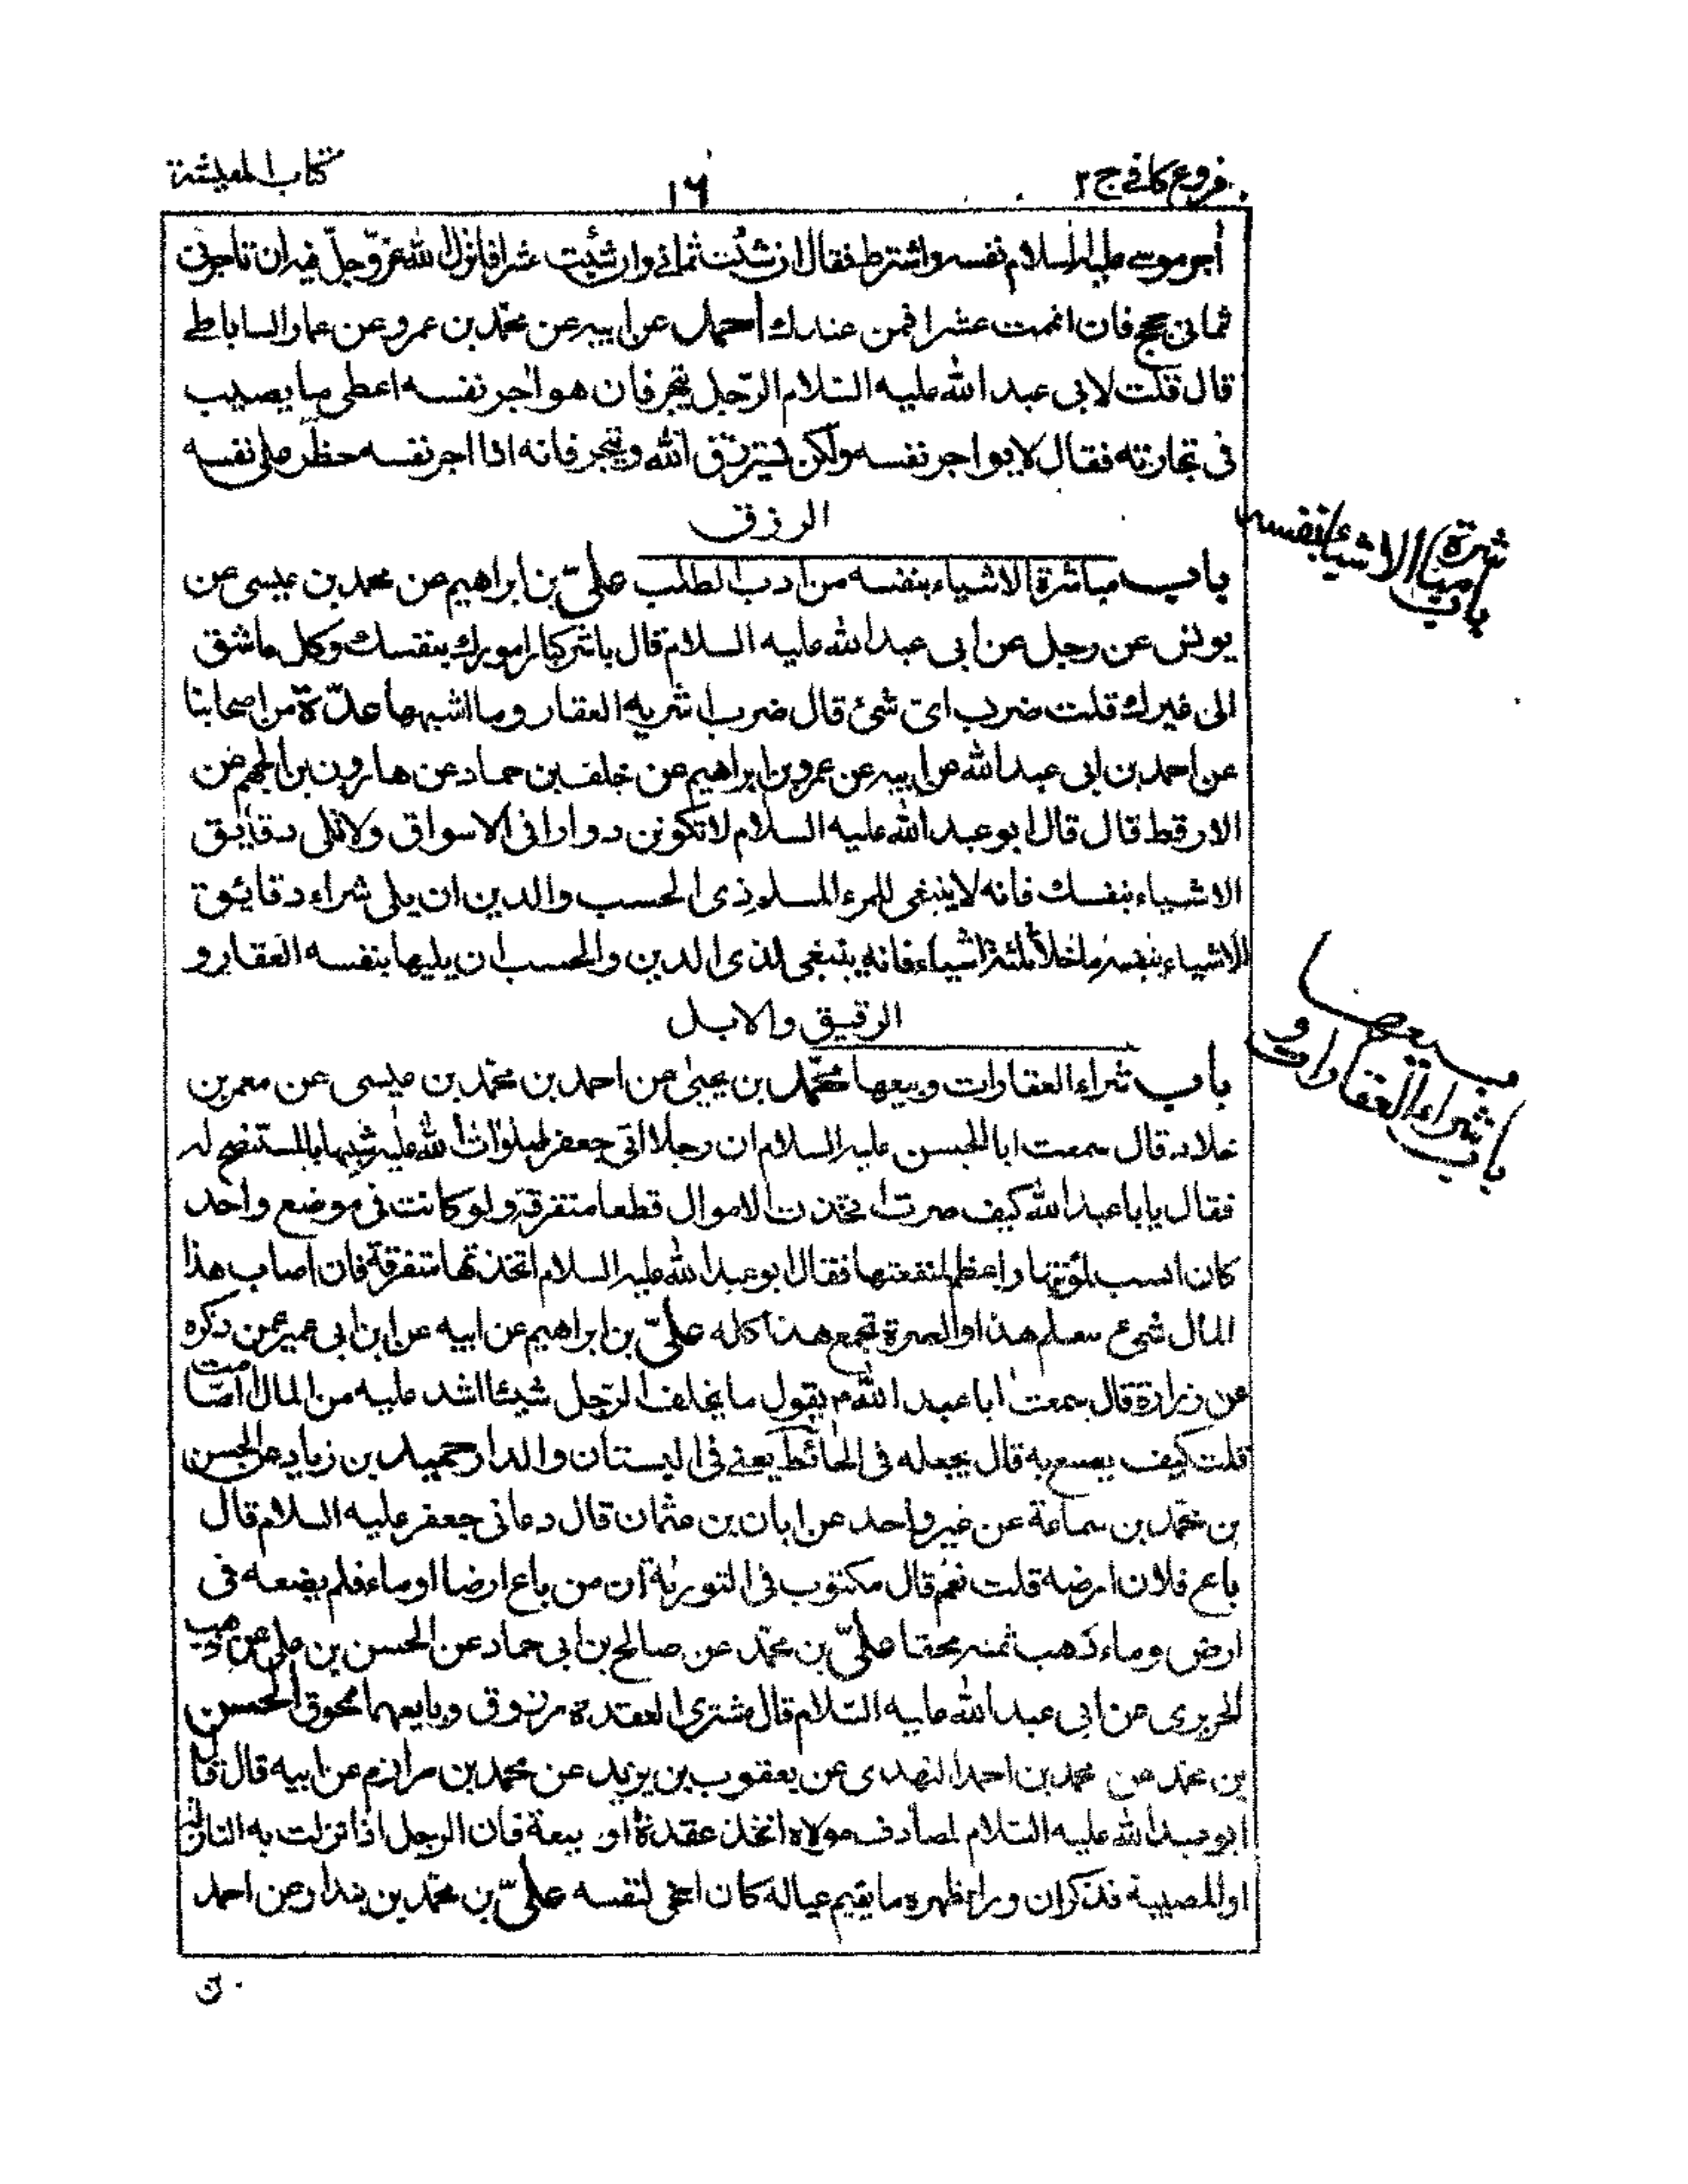 فروع كافي ج ٢
١٦
كتاب المعيشة
أجر موسى عليه السلام نفسه واشترط فقال ان شئت ثماني وان شئت عشرا فانزل الله عز وجل فيه ان تاجرني
ثماني حجج فان اتممت عشرا فمن عندك احمد عن ابيه عن محمد بن عمرو عن عمار الساباطي
قال قلت لابي عبد الله عليه السلام الرجل يتجر فان هو اجر نفسه اعطى ما يصيب
في تجارته فقال لا يواجر نفسه ولكن يسترزق الله ويتجر فانه اذا اجر نفسه حظر على نفسه
الرزق
باب مباشرة الاشياء بنفسه من ادب الطلب عليّ بن ابراهيم عن محمد بن عيسى عن
يونس عن رجل عن أبي عبد الله عليه السلام قال باشر كبار امورك بنفسك وكل ما شق
الى غيرك قلت ضرب اي شئ قال ضرب اشرية العقار وما اشبهها عدّة من اصحابنا
عن احمد بن ابي عبد الله عن ابيه عن عمرو بن ابراهيم عن خلف بن حماد عن هارون بن الجهم عن
الارقط قال قال ابو عبد الله عليه السلام لا تكونن دوارا في الاسواق ولا تلى دقايق
الاشياء بنفسك فانه لا ينبغي للمرء المسلم ذي الحسب والدين ان يلى شراء دقائق
الاشياء بنفسه ما خلا ثلثة اشياء فانه ينبغي لذى الدين والحسب ان يليها بنفسه العقار و
الرقيق والابل
باب شراء العقارات وبيعها محمّد بن يحيى عن احمد بن محمّد بن عيسى عن معمر بن
خلاد قال سمعت ابا الحسن عليه السلام ان رجلا اتى جعفر صلوات الله عليه شبيها بالمستنصح له
فقال يا با عبد الله كيف صرت اتخذت الاموال قطعا متفرقة ولو كانت في موضع واحد
كان ايسر لمؤنتها واعظم لمنفعتها فقال ابو عبد الله عليه السلام اتخذتها متفرقة فان اصاب هذا
المال شئ سلم هذا والصرة تجمع هذا كله عليّ بن ابراهيم عن ابيه عن ابن ابي عمير عمن ذكره
عن زرارة قال سمعت ابا عبد الله م يقول ما يخلف الرّجل شيئا اشد عليه من المال الصامت
قلت كيف يصنع به قال يجعله في الحائط يعني في البستان والدار حميد بن زياد عن الحسن
بن محمّد بن سماعة عن غير واحد عن ابان بن عثمان قال دعاني جعفر عليه السلام قال
باع فلان ارضه قلت نعم قال مكتوب في التورية ان من باع ارضا او ماء فلم يضعه في
ارض وماء ذهب ثمنه محقا عليّ بن محمّد عن صالح بن ابي حماد عن الحسن بن علي عن وهب
الحريري عن ابي عبد الله عليه السلام قال مشترى العقدة مرزوق وبايعها محوق الحسن
بن محمد عن محمد بن احمد النهدي عن يعقوب بن يزيد عن محمد بن مرازم عن ابيه قال قال
ابو عبد الله عليه السلام لمصادف مولاه اتخذ عقدة او بيعة فان الرجل اذا نزلت به النازلة
او المصيبة فذكر ان وراء ظهره ما يقيم عياله كان اسخى لنفسه عليّ بن محمّد بن بندار عن احمد
باب مباشرة الاشياء بنفسه
باب شراء العقارات و
بيعها